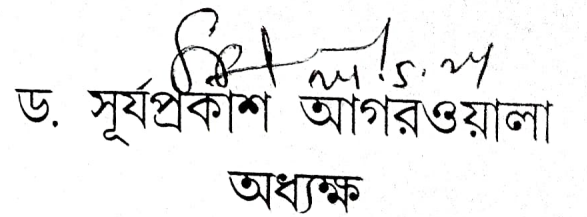 ড. সূর্যপ্রকাশ আগরওয়ালা
অধ্যক্ষ